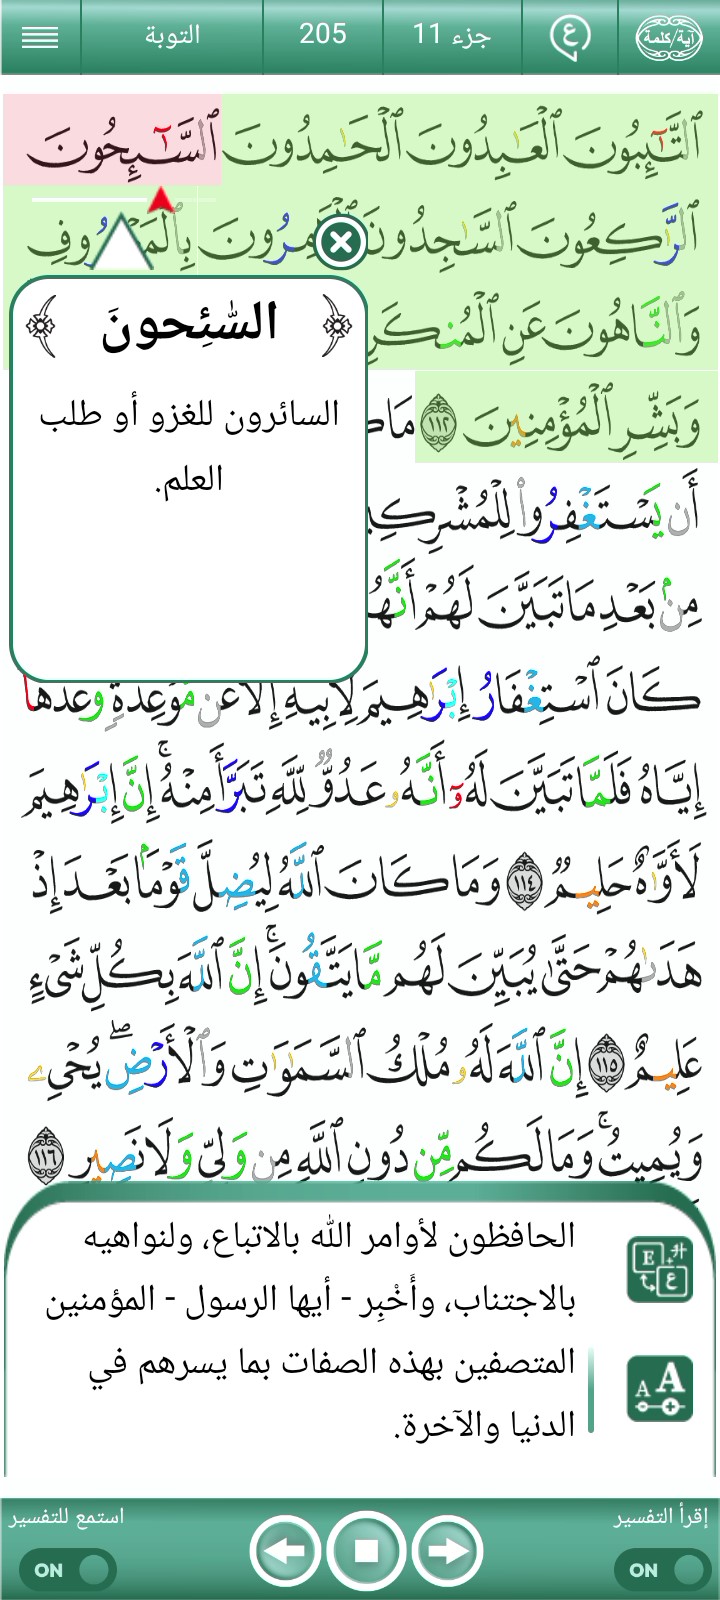 آية/كلمة
ع
جزء 11
205
التوبة
ٱلتَّـٰٓئِبُونَ ٱلْعَـٰبِدُونَ ٱلْحَـٰمِدُونَ ٱلسَّـٰٓئِحُونَ
ٱلرَّٰكِعُونَ ٱلسَّـٰجِدُونَ بِٱلْمَعْرُوفِ
وَٱلنَّاهُونَ عَنِ ٱلْمُنكَرِ
وَبَشِّرِ ٱلْمُؤْمِنِينَ ١١٢
أَن يَسْتَغْفِرُوا۟ لِلْمُشْرِكِينَ
مِنۢ بَعْدِ مَا تَبَيَّنَ لَهُمْ أَنَّهُمْ
السّٰئِحونَ
السائرون للغزو أو طلب
العلم.
كَانَ ٱسْتِغْفَارُ إِبْرَٰهِيمَ لِأَبِيهِ إِلَّا عَن مَّوْعِدَةٍ وَعَدَهَا
إِيَّاهُ فَلَمَّا تَبَيَّنَ لَهُۥٓ أَنَّهُۥ عَدُوٌّ لِّلَّهِ تَبَرَّأَ مِنْهُ ۚ إِنَّ إِبْرَٰهِيمَ
لَأَوَّٰهٌ حَلِيمٌ ١١٤ وَمَا كَانَ ٱللَّهُ لِيُضِلَّ قَوْمًۢا بَعْدَ إِذْ
هَدَىٰهُمْ حَتَّىٰ يُبَيِّنَ لَهُم مَّا يَتَّقُونَ ۚ إِنَّ ٱللَّهَ بِكُلِّ شَىْءٍ
عَلِيمٌ ١١٥ إِنَّ ٱللَّهَ لَهُۥ مُلْكُ ٱلسَّمَـٰوَٰتِ وَٱلْأَرْضِ ۖ يُحْىِۦ
وَيُمِيتُ ۚ وَمَا لَكُم مِّن دُونِ ٱللَّهِ مِن وَلِىٍّ وَلَا نَصِيرٍ ١١٦
الحافظون لأوامر الله بالاتباع، ولنواهيه
بالاجتناب، وأَخْبِر - أيها الرسول - المؤمنين
المتصفين بهذه الصفات بما يسرهم في
الدنيا والآخرة.
إقرأ التفسير
استمع للتفسير
ON
ON